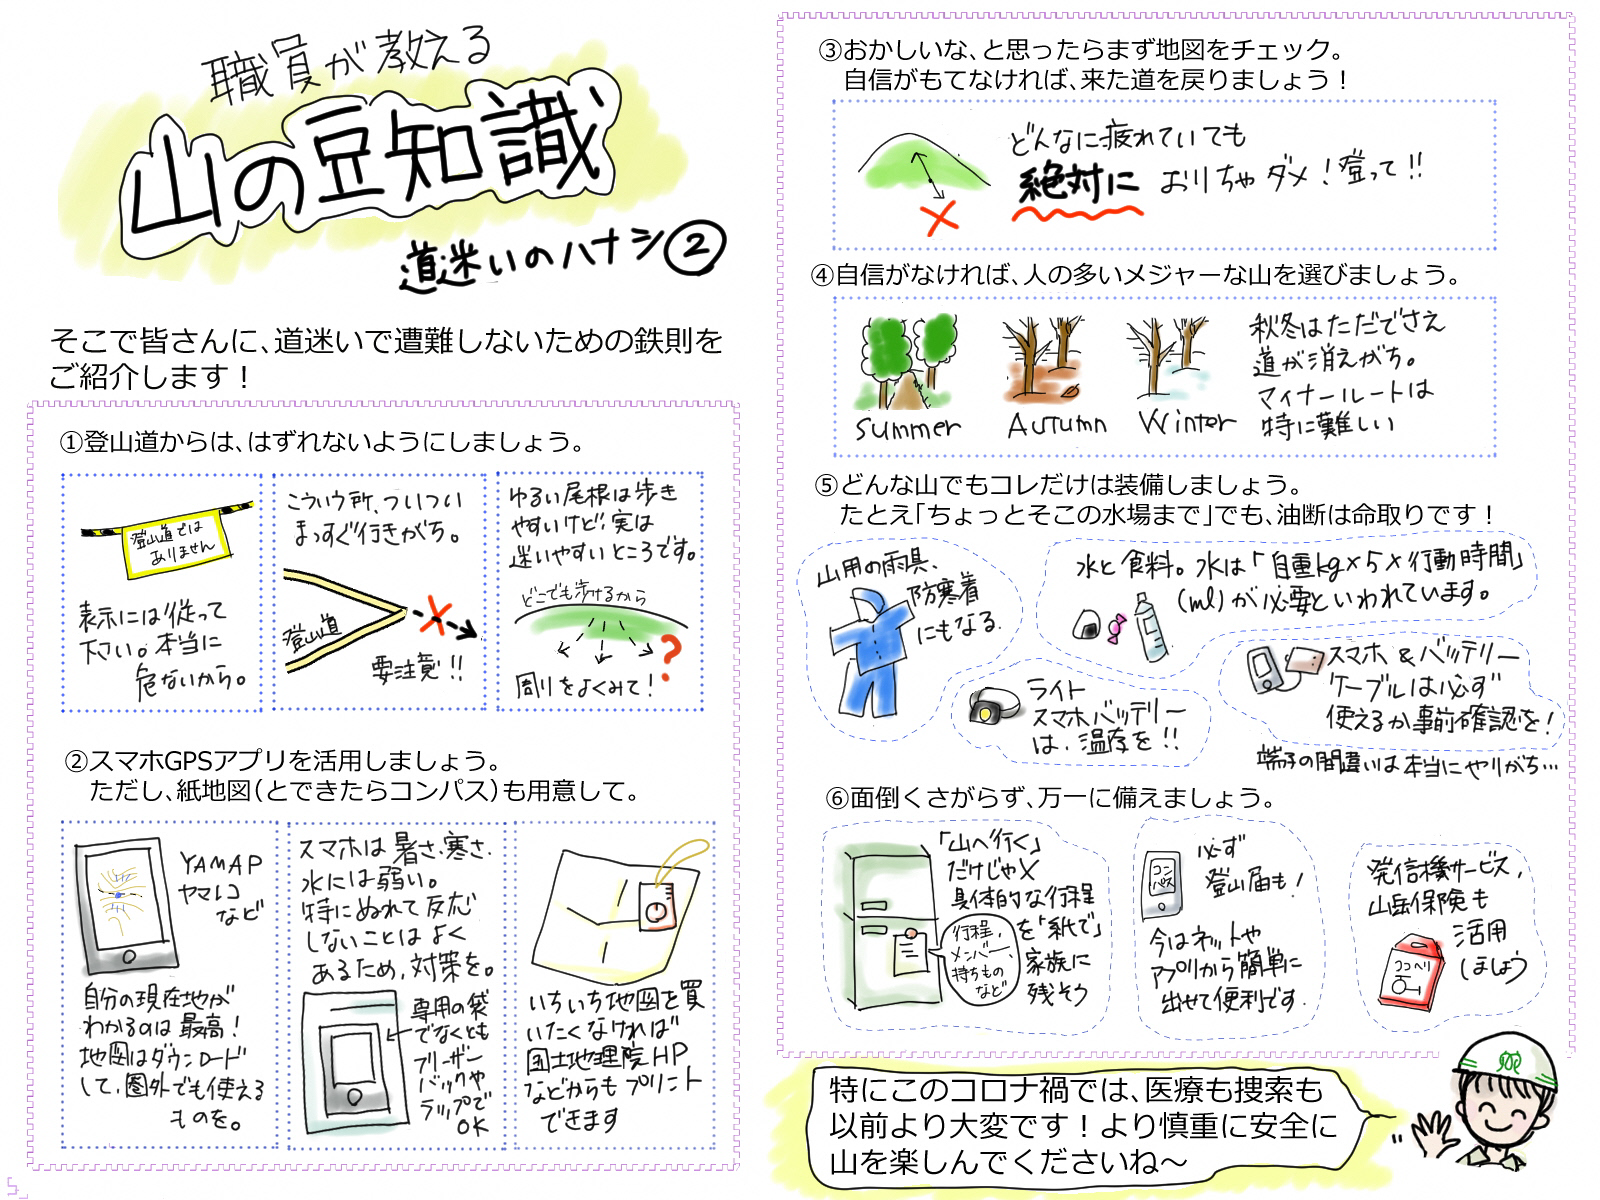 職員が教える
山の豆知識
道迷いのハナシ②
そこで皆さんに、道迷いで遭難しないための鉄則を
ご紹介します！
①登山道からは、はずれないようにしましょう。
登山道では
ありません
表示には従って
下さい。本当に
危ないから。
こういう所、ついつい
まっすぐ行きがち。
登山道
要注意!!
ゆるい尾根は歩き
やすいけど、実は
迷いやすいところです。
どこでも歩けるから
?
周りをよくみて!
②スマホGPSアプリを活用しましょう。
ただし、紙地図（とできたらコンパス）も用意して。
YAMAP
ヤマレコ
など
自分の現在地が
わかるのは最高!
地図はダウンロード
して、圏外でも使える
ものを。
スマホは暑さ、寒さ、
水には弱い。
特にぬれて反応
しないことはよく
あるため、対策を。
専用の袋
でなくとも
フリーザー
バックや
ラップで
OK
いちいち地図を買
いたくなければ
国土地理院HP
などからもプリント
できます
③おかしいな、と思ったらまず地図をチェック。
自信がもてなければ、来た道を戻りましょう！
どんなに疲れていても
絶対に おりちゃダメ!登って!!
④自信がなければ、人の多いメジャーな山を選びましょう。
Summer
Autumn
Winter
秋冬はただでさえ
道が消えがち。
マイナールートは
特に難しい
⑤どんな山でもコレだけは装備しましょう。
たとえ「ちょっとそこの水場まで」でも、油断は命取りです！
山用の雨具、
防寒着
にもなる.
水と食料。水は「自重kg×5×行動時間」
(ml)が必要といわれています。
ライト
スマホバッテリー
は、温存を!!
スマホ&バッテリー
ケーブルは必ず
使えるか事前確認を!
端子の間違いは本当にやりがち…
⑥面倒くさがらず、万一に備えましょう。
「山へ行く」
だけじゃ×
具体的な行程
を「紙で」
家族に
残そう
行程、
メンバー、
持ちもの
など
コン
パス
必ず
登山届も!
今はネットや
アプリから簡単に
出せて便利です.
発信機サービス,
山岳保険も
活用
しましょう
ココヘリ
特にこのコロナ禍では、医療も捜索も
以前より大変です！より慎重に安全に
山を楽しんでくださいね～